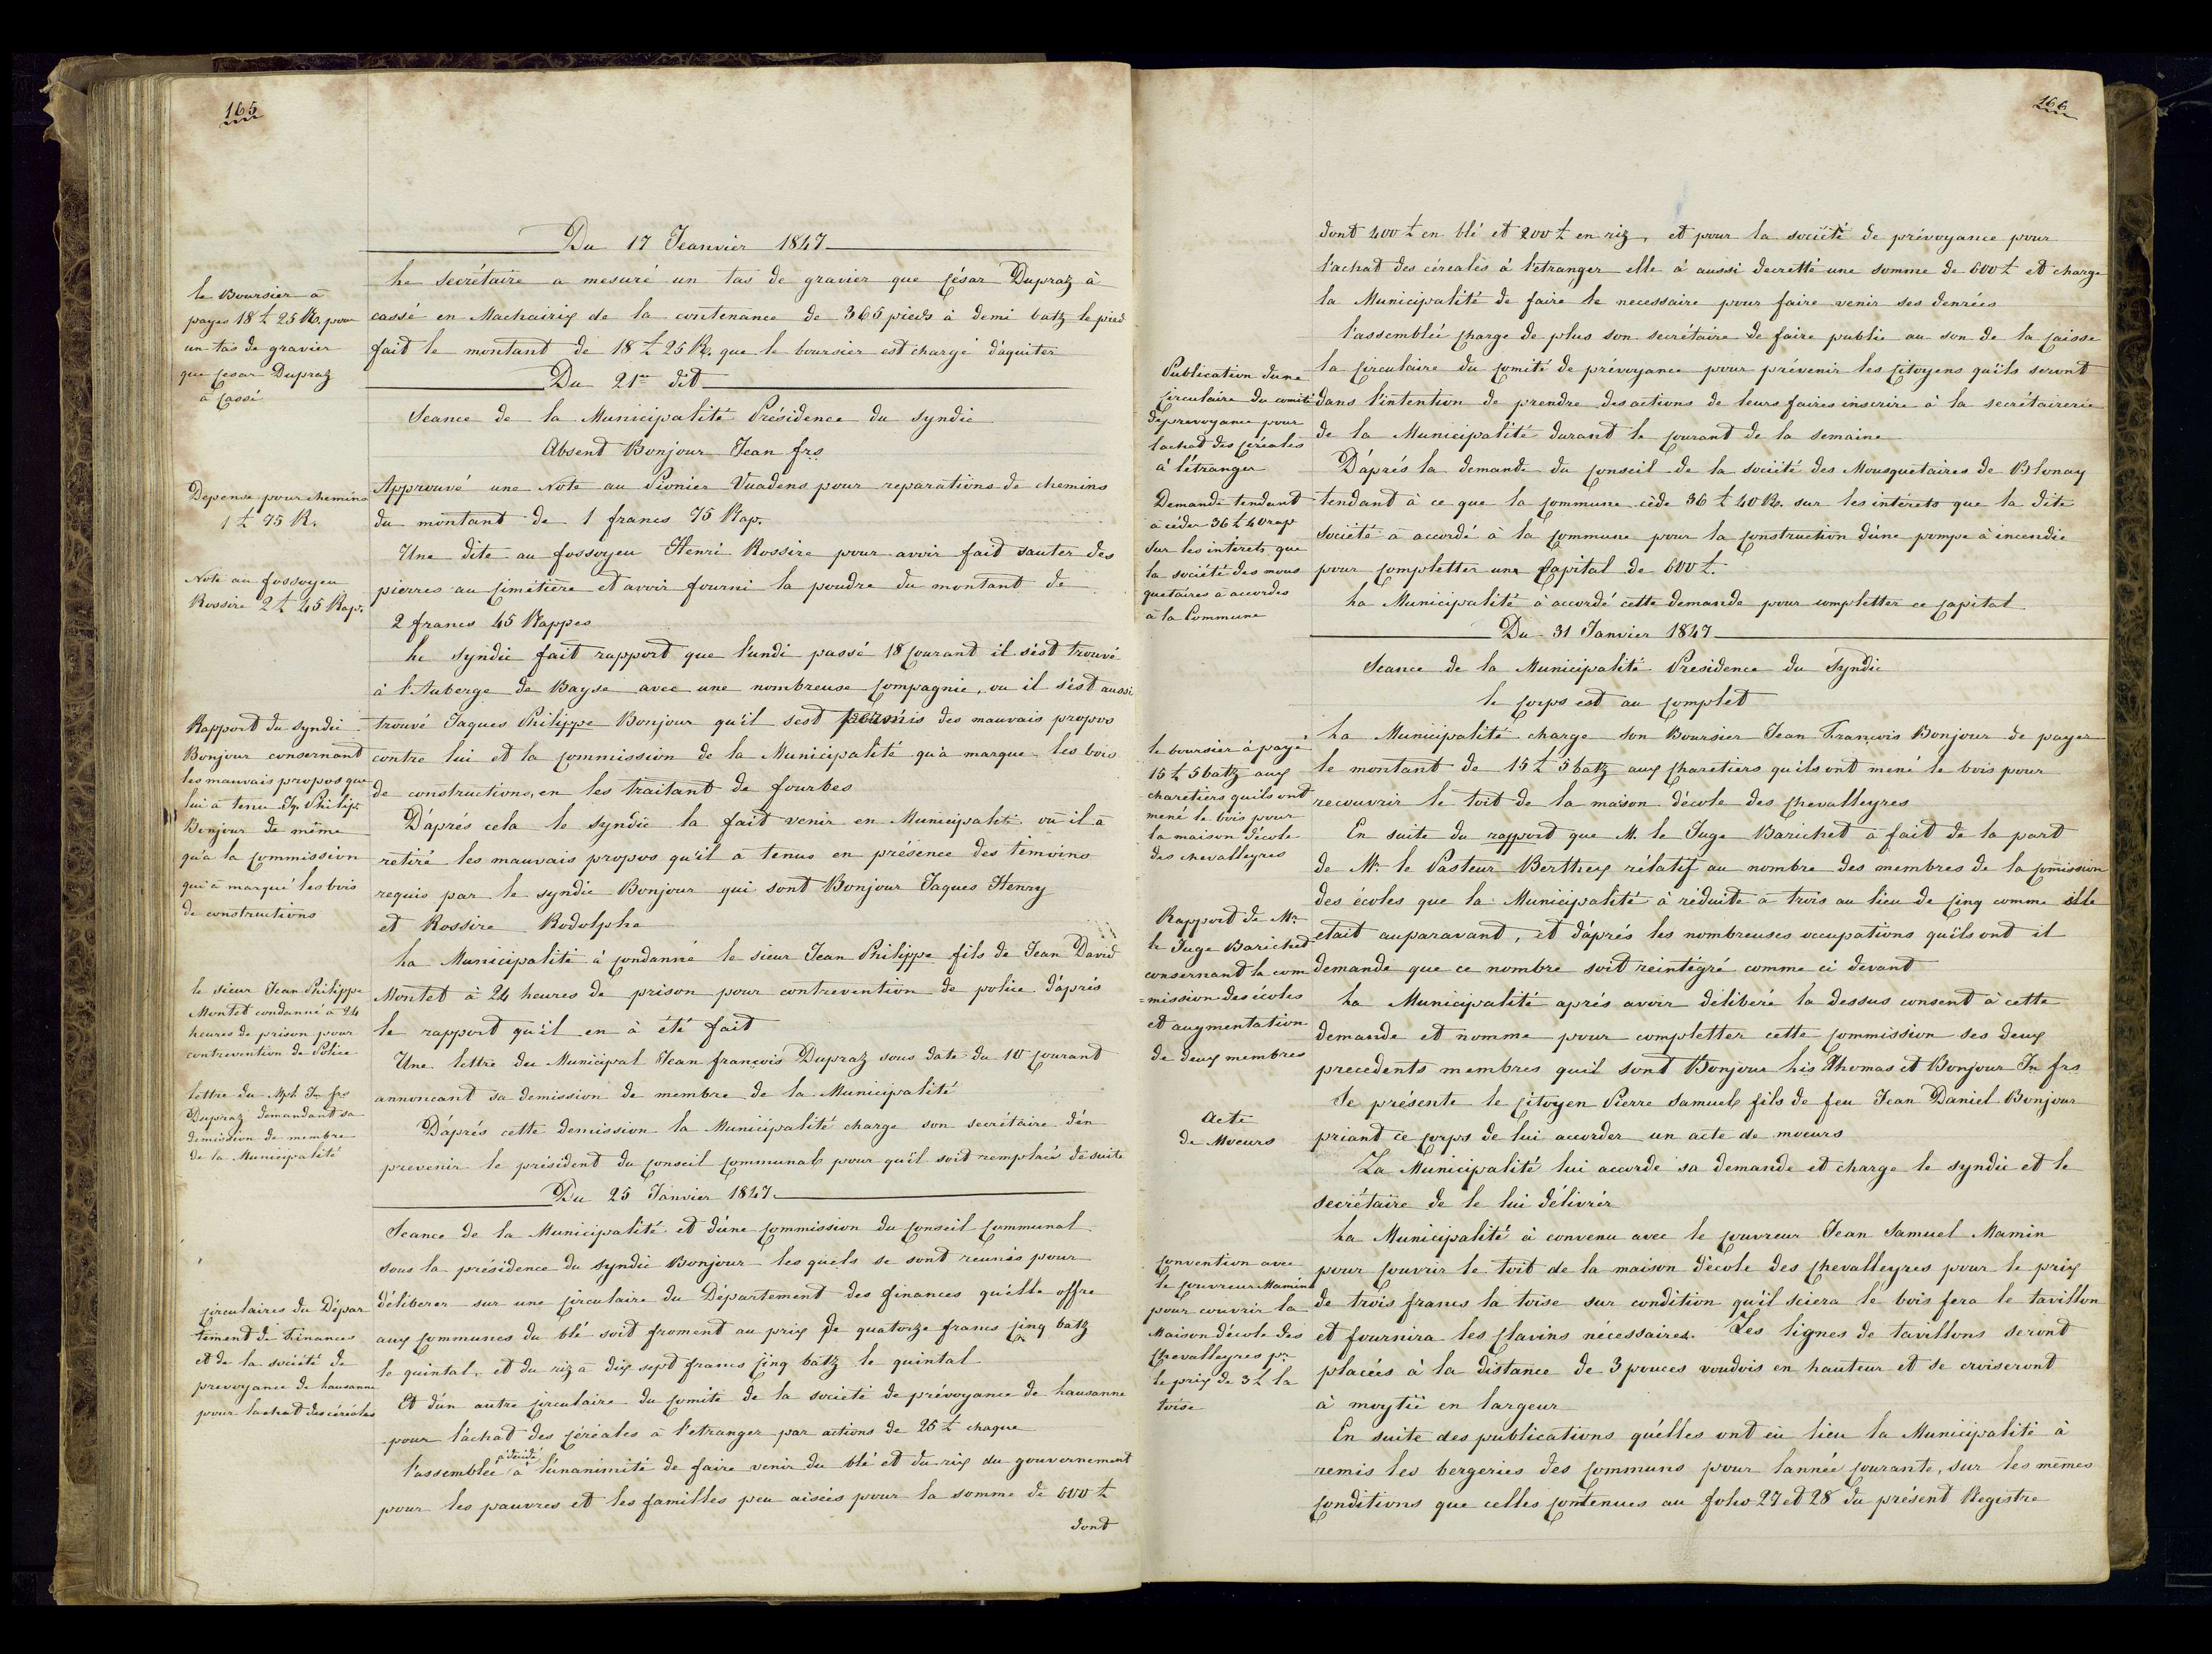 165
Du 17 Jeanvier 1847
Le secrétaire a mesuré un tas de gravier que César Dupraz à
cassé en Machairix de la contenance de 365 pieds à demi batz le pied
fait le montant de 18 £ 25 R. que le boursier est chargé d'aquiter
le Boursier à
payer 18 £ 25 R. pour
un tas de gravier
que Cesar Dupraz
à Cassé
Du 21me dit
Seance de la Municipalité Présidence du Syndic
Absent Bonjour Jean frs
Approuvé une Note au Pionier Vuadens pour reparations de chemins
du montant de 1 francs 75 Rap.
Depense pour chemins
1 £ 75 R.
Une dite au fossoyeu Henri Rossire pour avoir fait sauter des
pierres au Cimetière et avoir fourni la poudre du montant de
2 francs 45 Rappes
Note au fossoyeu
Rossire 2 £ 45 Rap.
Le Syndic fait rapport que l'undi passé 18 Courant il s'est trouvé
à l'Auberge de Bayse avec une nombreuse Compagnie, ou il s'est aussi
trouvé Jaques Philippe Bonjour qu'il sest permis des mauvais propos
contre lui et la Commission de la Municipalité qu'à marque les bois
de constructions, en les traitant de fourbes
D'aprés cela le Syndic la fait venir en Municipalité où il à
retiré les mauvais propos qu'il à tenus en présence des témoins
requis par le syndic Bonjour qui sont Bonjour Jaques Henry
et Rossire Rodolphe
Rapport du Syndic
Bonjour consernant
les mauvais propos que
lui à tenu Jq. Philip.
Bonjour de même
qu'a la Commission
qui à marqué les bois
de constructions
La Municipalité à Condanné le sieur Jean Philippe fils de Jean David
Montet à 24 heures de prison pour contrevention de police d'aprés
le rapport qu'il en à été fait
le sieur Jean Philippe
Montet condanné à 24
heures de prison pour
contrevention de Police
Une lettre du Municipal Jean françois Dupraz sous date du 10 Courant
annoncant sa demission de membre de la Municipalité
D'aprés cette demission la Municipalité charge son secrétaire d'en
prevenir le président du Conseil Communal pour qu'il soit remplacé de suite
lettre du Mpl. Jn frs
Dupraz demandant sa
demission de membre
de la Municipalité
Du 25 Janvier 1847.
Seance de la Municipalité et d'une Commission du Conseil Communal
sous la présidence du Syndic Bonjour les quels se sont reunis pour
déliberer sur une Circulaire du Département des finances qu'elle offre
aux Communes du blé soit froment au prix de quatorze francs Cinq batz
le quintal, et du riz à dix sept francs Cinq batz le quintal
Et d'un autre Circulaire du Comité de la société de prévoyance de Lausanne
pour l'achat des Céréales à l'etranger par actions de 25 £ chaque
l'assemblée à décidé à l'unanimité de faire venir du blé et du riz du gouvernement
pour les pauvres et les familles peu aisées pour la somme de 600 £
dont
Circulaires du Dépar
tement de Finances
et de la société de
prevoyance de Lausanne
pour lachat des céréales
166
dont 400 £ en blé et 200 £ en riz, et pour la société de prévoyance pour
l'achat des céreales à l'etranger elle à aussi decretté une somme de 600 £ et charge
la Municipalité de faire le necessaire pour faire venir ses denrées
l'assemblée Charge de plus son secrétaire de faire publie au son de la Caisse
la Circulaire du Comité de prévoyance pour prévenir les Citoyens qu'ils seront
dans l'intention de prendre des actions de leurs faires inscrire à la secrétairerie
de la Municipalité durant le Courant de la semaine
Publication dune
Circulaire du comité
de prevoyance pour
lachat des Céréales
à l'étranger
D'aprés la demande du Conseil de la société des Mousquetaires de Blonay
tendant à ce que la Commune cède 36 £ 40 R. sur les intérets que la dite
Société à accordé à la Commune pour la Construction d'une pompe à incendie
pour Completter un Capital de 600 £.
La Municipalité à accordé cette demande pour completter ce Capital
Demande tendant
à céder 36 £ 40 rap
Sur les intérets que
la société des mous
quetaires à accordés
à la Commune
Du 31 Janvier 1847
Seance de la Municipalité Presidence du Syndic
le Corps est au Complet
La Municipalité charge son Boursier Jean François Bonjour de payer
le montant de 15 £ 5 batz aux Charetiers qu'ils ont mené le bois pour
recouvrir le toit de la maison d'école des Chevalleyres
le boursier à payé
15 £ 5 batz aux
charetiers quils ont
mené le bois pour
la maison d'école
des chevalleyres
En suite du rapport que M. le Juge Barichet à fait de la part
de Mr. le Pasteur Berthex rélatif au nombre des membres de la Comission
des écoles que la Municipalité à réduite à trois au lieu de Cinq comme elle
etait auparavant, et d'aprés les nombreuses occupations qu'ils ont il
demande que ce nombre soit reintégré comme ci devant
La Municipalité aprés avoir délibéré la dessus consent à cette
demande et nomme pour completter cette Commission ses deux
precedents membres quil sont Bonjour Ls Thomas et Bonjour Jn frs
Rapport de Mr.
le Juge Barichet
consernant la com
=mission des écoles
et augmentation
de deux membres
Se présente le Citoyen Pierre Samuel fils de feu Jean Daniel Bonjour
priant ce Corps de lui accorder un acte de moeurs
La Municipalité lui accorde sa demande et charge le syndic et le
secrétaire de le lui délivrér
Acte
de Moeurs
La Municipalité à convenu avec le Couvreur Jean Samuel Mamin
pour Couvrir le toit de la maison d'école des Chevalleyres pour le prix
de trois francs la toise sur condition qu'il sciera le bois fera le tavillon
et fournira les Clavins nécessaires. Les lignes de tavillons seront
placées à la distance de 3 pouces voudois en hauteur et se croiseront
à moytié en largeur
Convention avec
le Couvreur Mamin
pour couvrir la
Maison d'école des
Chevalleyres pr
le prix de 3 £ la
toise
En suite des publications qu'elles ont eù lieu la Municipalité à
remis les bergeries des Communs pour lannée Courante, sur les mêmes
Conditions que celles Contenues au folio 27 et 28 du présent Registre